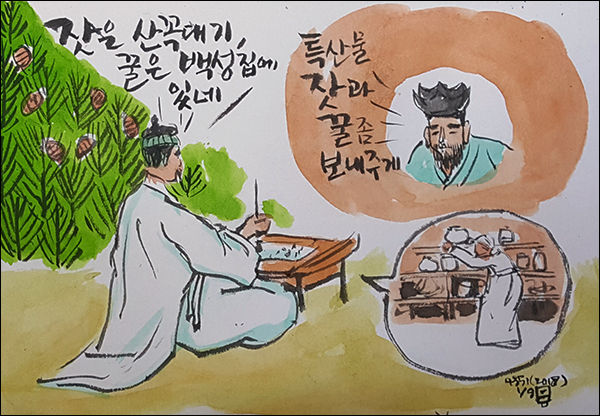 잣은 산꼭대기,
꿀은 백성집에
있네
특산물
잣과
꿀 좀
보내주게
(2018)
1/9